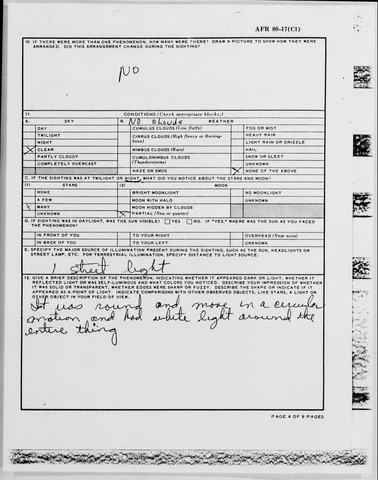 AFR 80-17(C1)
10. IF THERE WERE MORE THAN ONE PHENOMENON, HOW MANY WERE THERE? DRAW A PICTURE TO SHOW HOW THEY WERE
ARRANGED. DID THIS ARRANGEMENT CHANGE DURING THE SIGHTING?
NO
11. CONDITIONS (Check appropriate blocks.)
A. SKY B. NO clouds WEATHER
DAY CUMULUS CLOUDS (Low fluffy) FOG OR MIST
TWILIGHT CIRRUS CLOUDS (High fleecy or Herring- HEAVY RAIN
NIGHT bone) LIGHT RAIN OR DRIZZLE
X CLEAR NIMBUS CLOUDS (Rain) HAIL
PARTLY CLOUDY CUMULONIMBUS CLOUDS SNOW OR SLEET
COMPLETELY OVERCAST (Thunderstorms) UNKNOWN
HAZE OR SMOG X NONE OF THE ABOVE
C. IF THE SIGHTING WAS AT TWILIGHT OR NIGHT, WHAT DID YOU NOTICE ABOUT THE STARS AND MOON?
(1) STARS (2) MOON
NONE BRIGHT MOONLIGHT NO MOONLIGHT
A FEW MOON WITH HALO UNKNOWN
X MANY MOON HIDDEN BY CLOUDS
UNKNOWN X PARTIAL (New or quarter)
D. IF SIGHTING WAS IN DAYLIGHT, WAS THE SUN VISIBLE? YES NO. IF "YES," WHERE WAS THE SUN AS YOU FACED
THE PHENOMENON?
IN FRONT OF YOU TO YOUR RIGHT OVERHEAD (Near noon)
IN BACK OF YOU TO YOUR LEFT UNKNOWN
E. SPECIFY THE MAJOR SOURCE OF ILLUMINATION PRESENT DURING THE SIGHTING, SUCH AS THE SUN, HEADLIGHTS OR
STREET LAMP, ETC. FOR TERRESTRIAL ILLUMINATION, SPECIFY DISTANCE TO LIGHT SOURCE.
1 street light
12. GIVE A BRIEF DESCRIPTION OF THE PHENOMENON, INDICATING WHETHER IT APPEARED DARK OR LIGHT, WHETHER IT
REFLECTED LIGHT OR WAS SELF-LUMINOUS AND WHAT COLORS YOU NOTICED. DESCRIBE YOUR IMPRESSION OF WHETHER
IT WAS SOLID OR TRANSPARENT, WHETHER EDGES WERE SHARP OR FUZZY. DESCRIBE THE SHAPE OR INDICATE IF IT
APPEARED AS A POINT OF LIGHT. INDICATE COMPARISONS WITH OTHER OBSERVED OBJECTS, LIKE STARS, A LIGHT OR
OTHER OBJECT IN YOUR FIELD OF VIEW.
It was round and move in a circular
motion and had white light around the
entire thing
PAGE 4 OF 9 PAGES